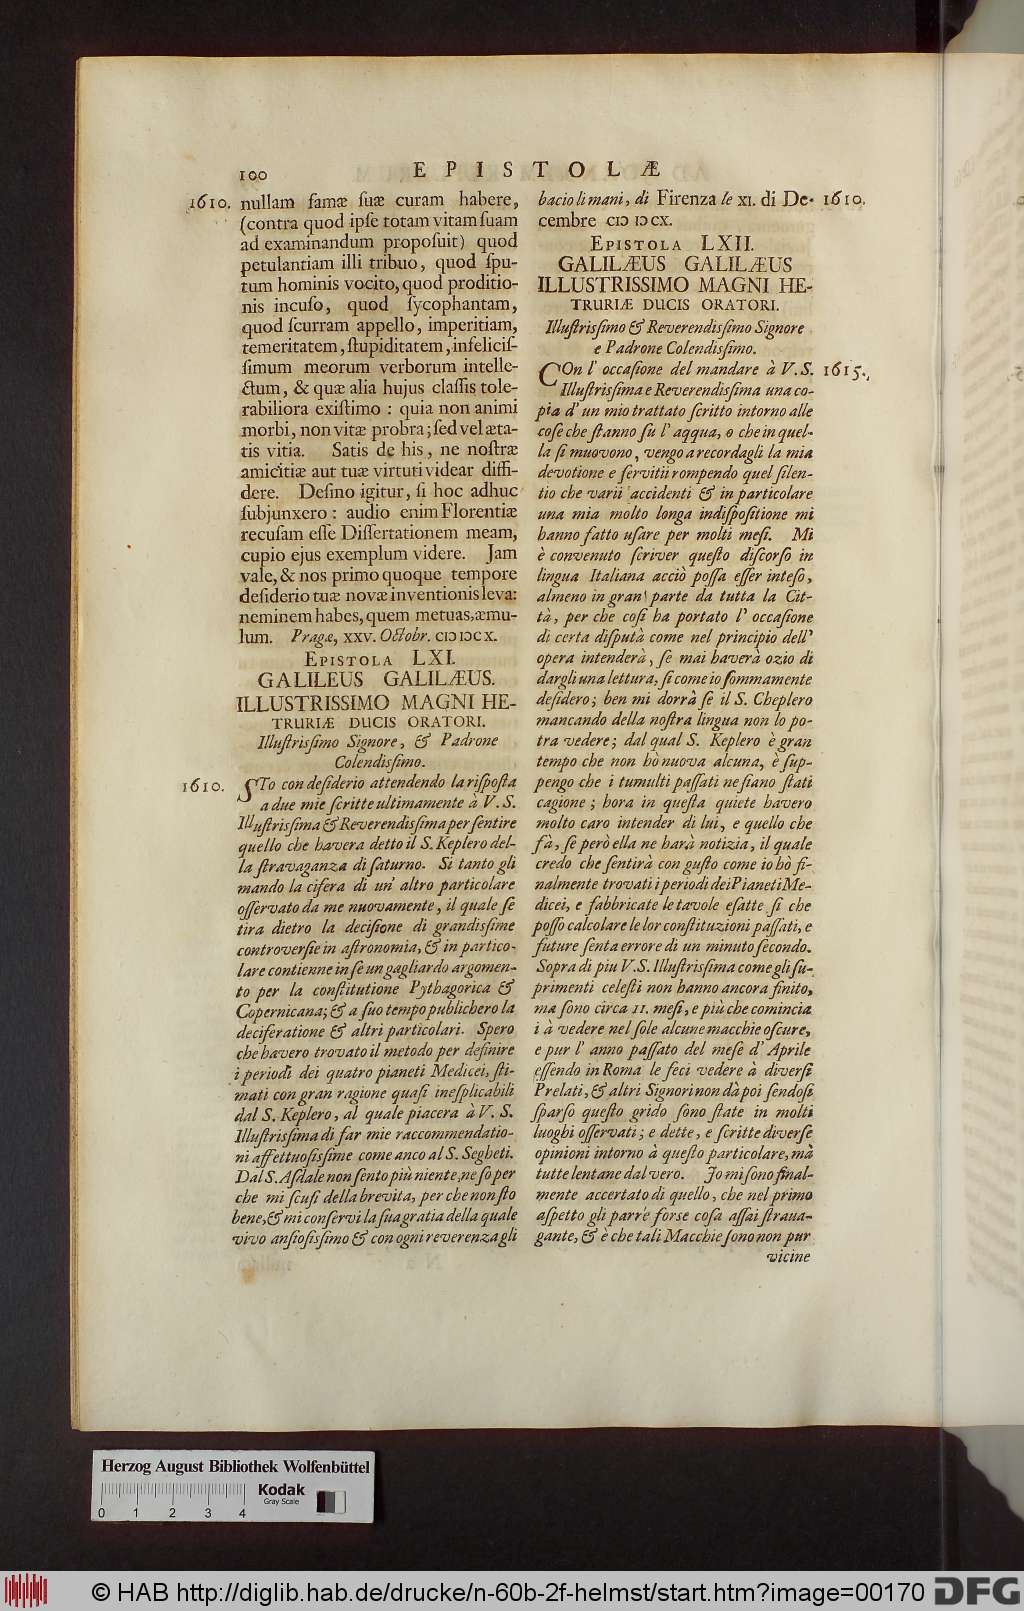 100
EPISTOLÆ
1610. nullam famæ ſuæ curam habere,
(contra quod ipſe totam vitam ſuam
ad examinandum propoſuit) quod
petulantiam illi tribuo, quod ſpu-
tum hominis vocito, quod proditio-
nis incuſo, quod ſycophantam,
quod ſcurram appello, imperitiam,
temeritatem, ſtupiditatem, infeliciſ-
ſimum meorum verborum intelle-
ctum, & quæ alia hujus claſſis tole-
rabiliora exiſtimo : quia non animi
morbi, non vitæ probra; ſed vel æta-
tis vitia. Satis de his, ne noſtræ
amicitiæ aut tuæ virtuti videar diffi-
dere. Deſino igitur, ſi hoc adhuc
ſubjunxero : audio enim Florentiæ
recuſam eſſe Diſſertationem meam,
cupio ejus exemplum videre. Jam
vale, & nos primo quoque tempore
deſiderio tuæ novæ inventionis leva:
neminem habes, quem metuas, æmu-
lum. Pragæ, XXV. Octobr. CIƆ IƆC X.
EPISTOLA LXI.
GALILEUS GALILÆUS.
ILLUSTRISSIMO MAGNI HE-
TRURIÆ DUCIS ORATORI.
Illuſtrisſimo Signore, & Padrone
Colendisſimo.
1610. STo con deſiderio attendendo la riſpoſta
a due mie ſcritte ultimamente à V. S.
Illuſtrisſima & Reverendisſima per ſentire
quello che havera detto il S. Keplero del-
la ſtravaganza di ſaturno. Si tanto gli
mando la cifera di un' altro particolare
oſſervato da me nuovamente, il quale ſe
tira dietro la deciſione di grandisſime
controverſie in aſtronomia, & in partico-
lare contienne in ſe un gagliardo argomen-
to per la conſtitutione Pythagorica &
Copernicana; & a ſuo tempo publichero la
deciferatione & altri particolari. Spero
che havero trovato il metodo per definire
i periodi dei quatro pianeti Medicei, ſti-
mati con gran ragione quaſi ineſplicabili
dal S. Keplero, al quale piacera à V. S.
Illuſtrisſima di far mie raccommendatio-
ni affettuoſisſime come anco al S. Segheti.
Dal S. Aſdale non ſento più niente, ne ſo per
che mi ſcuſi della brevita, per che non ſto
bene, & mi conſervi la ſua gratia della quale
vivo anſioſisſimo & con ogni reverenza gli
bacio li mani, di Firenza le XI. di De- 1610.
cembre CIƆ IƆ CX.
EPISTOLA LXII.
GALILÆUS GALILÆUS
ILLUSTRISSIMO MAGNI HE-
TRURIÆ DUCIS ORATORI.
Illuſtrisſimo & Reverendisſimo Signore
e Padrone Colendisſimo.
COn l' occaſione del mandare à V. S. 1615.
Illuſtrisſima e Reverendisſima una co-
pia d' un mio trattato ſcritto intorno alle
coſe che ſtanno ſu l' aqqua, o che in quel-
la ſi muovono, vengo a recordagli la mia
devotione e ſervitii rompendo quel ſilen-
tio che varii accidenti & in particolare
una mia molto longa indiſpoſitione mi
hanno fatto uſare per molti meſi. Mi
è convenuto ſcriver queſto diſcorſo in
lingua Italiana acciò poſſa eſſer inteſo,
almeno in gran parte da tutta la Cit-
tà, per che coſi ha portato l' occaſione
di certa diſputà come nel principio dell'
opera intenderà, ſe mai haverà ozio di
dargli una lettura, ſi come io ſommamente
deſidero; ben mi dorrà ſe il S. Cheplero
mancando della noſtra lingua non lo po-
tra vedere; dal qual S. Keplero è gran
tempo che non hò nuova alcuna, è ſup-
pengo che i tumulti paſſati ne ſiano ſtati
cagione ; hora in queſta quiete havero
molto caro intender di lui, e quello che
fà, ſe però ella ne harà notizia, il quale
credo che ſentirà con guſto come io hò fi-
nalmente trovati i periodi dei Pianeti Me-
dicei, e fabbricate le tavole eſatte ſi che
poſſo calcolare le lor conſtituzioni paſſati, e
future ſenta errore di un minuto ſecondo.
Sopra di piu V. S. Illuſtrisſima come gli ſu-
primenti celeſti non hanno ancora finito,
ma ſono circa 11. meſi, e più che comincia
i à vedere nel ſole alcune macchie oſcure,
e pur l' anno paſſato del meſe d' Aprile
eſſendo in Roma le feci vedere à diverſi
Prelati, & altri Signori non dà poi ſendoſi
ſparſo queſto grido ſono ſtate in molti
luoghi oſſervati; e dette, e ſcritte diverſe
opinioni intorno à queſto particolare, mà
tutte lentane dal vero. Jo mi ſono final-
mente accertato di quello, che nel primo
aſpetto gli parre forse coſa aſſai ſtrava-
gante, & è che tali Macchie ſono non pur
vicine
Herzog August Bibliothek Wolfenbüttel
Kodak
Gray Scale
0 1 2 3 4
© HAB http://diglib.hab.de/drucke/n-60b-2f-helmst/start.htm?image=00170
DFG